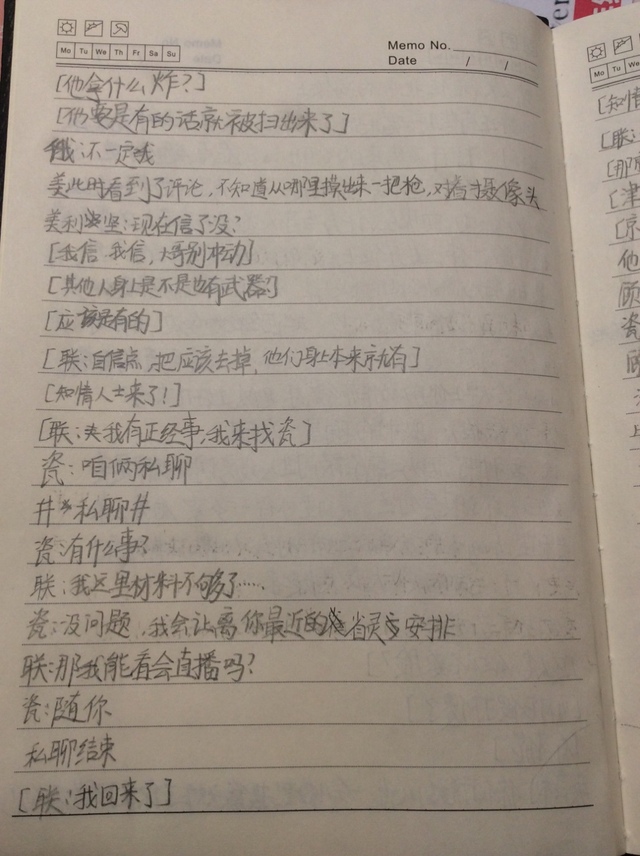 Mo Tu We Th Fr Sa Su
Memo No.
Date / /
[他拿什么炸?]
[他要是有的话就被扫出来了]
俄:不一定哦
美此时看到了评论,不知道从哪里摸出来一把枪,对着摄像头
美利坚:现在信了没?
[我信,我信,大哥别冲动]
[其他人身上是不是也有武器?]
[应该是有的]
[联:自信点,把应该去掉,他们身上本来就有]
[知情人士来了!]
[联:我有正经事,我来找瓷]
瓷:咱俩私聊
#私聊#
瓷:有什么事?
联:我这里材料不够了……
瓷:没问题,我会让离你最近的省灵安排
联:那我能看会直播吗?
瓷:随你
私聊结束
[联:我回来了]
Mo Tu We
[知情
[联:
[那
[津
[京
他
瓷